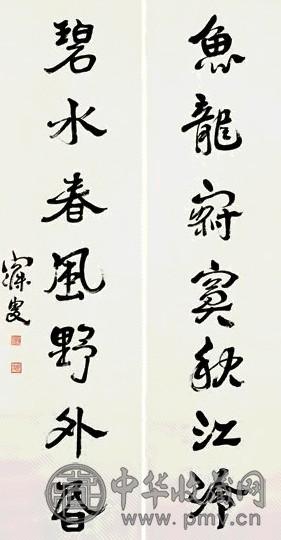 魚龍寂寞秋江冷
碧水春風野外昏
寐叟
中华收藏网
www.pmy.cn